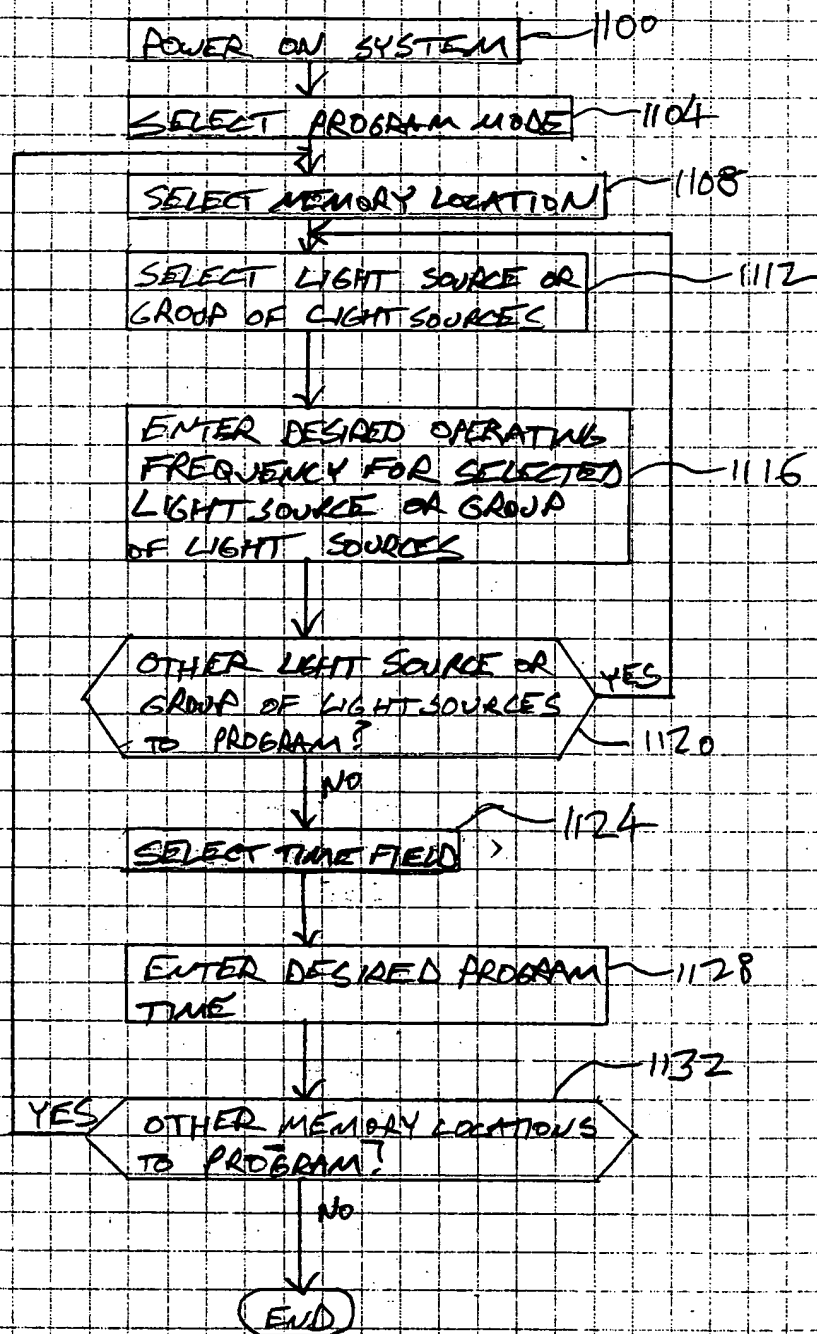 POWER ON SYSTEM 1100
SELECT PROGRAM MODE 1104
SELECT MEMORY LOCATION 1108
SELECT LIGHT SOURCE OR 1112
GROUP OF LIGHT SOURCES
ENTER DESIRED OPERATING
FREQUENCY FOR SELECTED 1116
LIGHT SOURCE OR GROUP
OF LIGHT SOURCES
OTHER LIGHT SOURCE OR YES
GROUP OF LIGHT SOURCES
TO PROGRAM? 1120
NO
1124
SELECT TIME FIELD
ENTER DESIRED PROGRAM 1128
TIME
1132
YES OTHER MEMORY LOCATIONS
TO PROGRAM?
NO
END